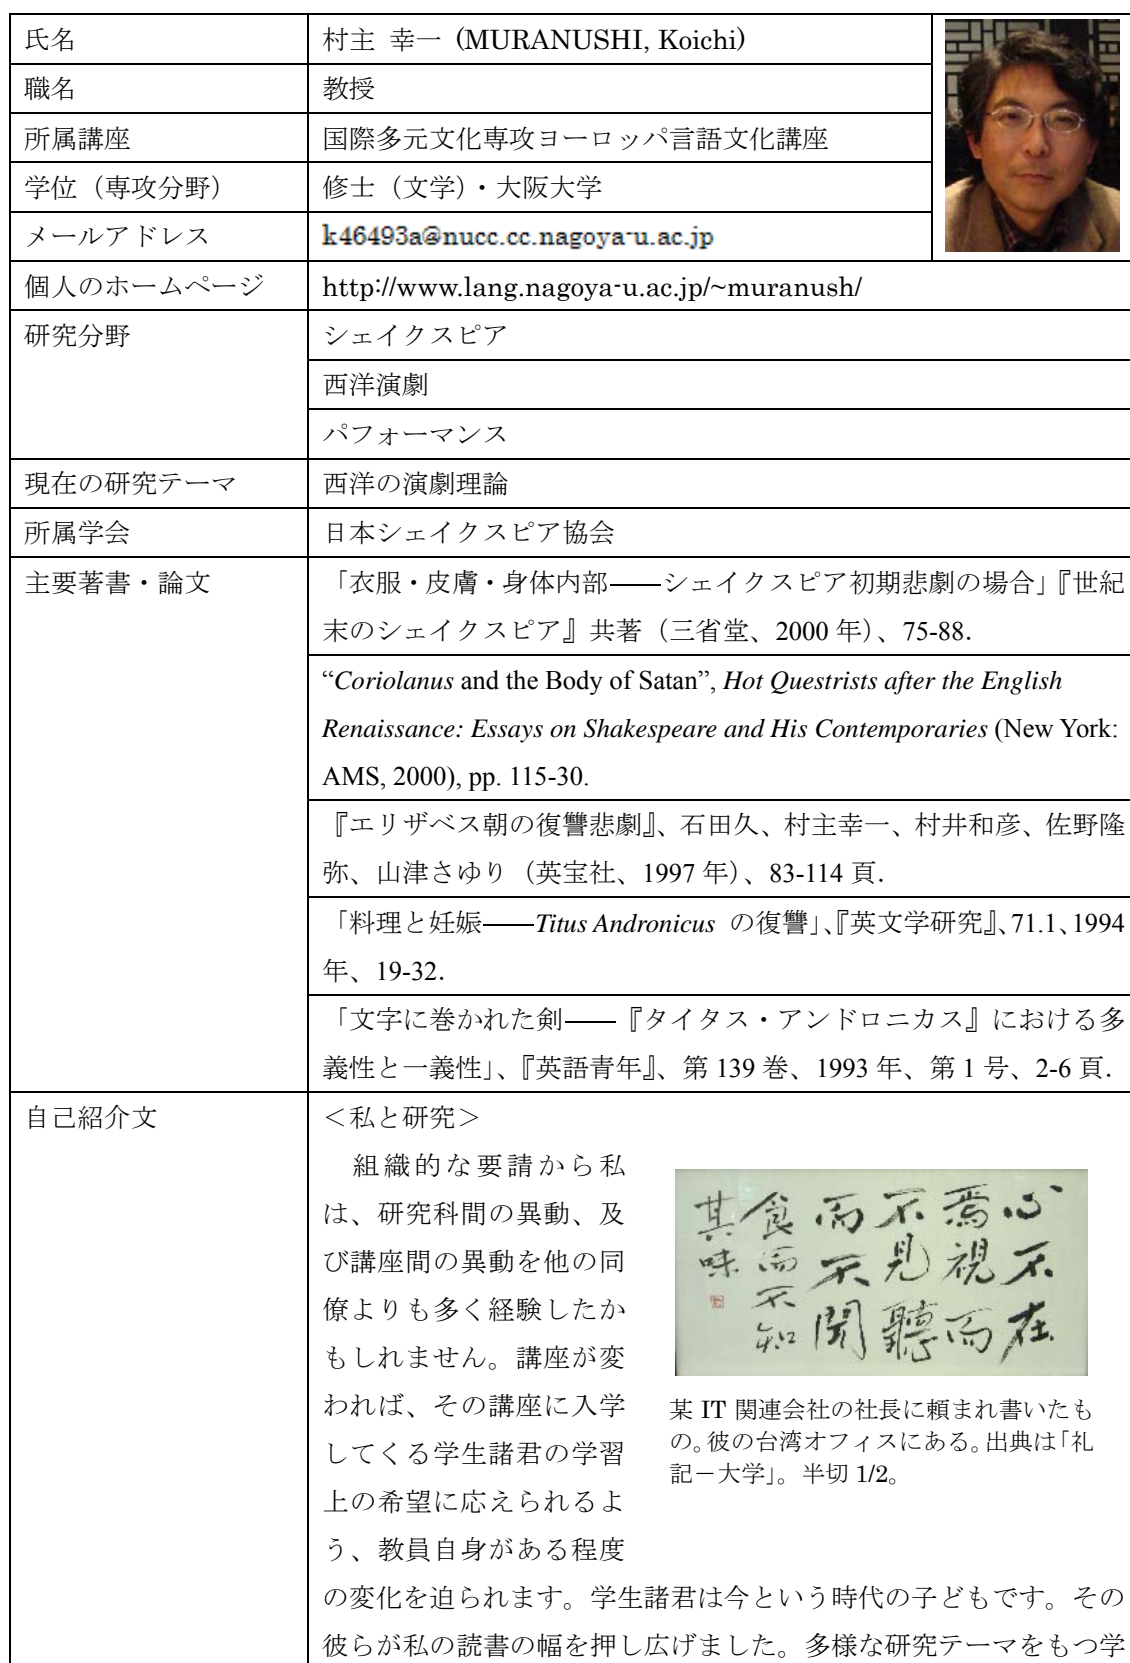 氏名
村主 幸一 (MURANUSHI, Koichi)
職名
教授
所属講座
国際多元文化専攻ヨーロッパ言語文化講座
学位（専攻分野）
修士（文学）・大阪大学
メールアドレス
k46493a@nucc.cc.nagoya-u.ac.jp
個人のホームページ
http://www.lang.nagoya-u.ac.jp/~muranush/
研究分野
シェイクスピア
西洋演劇
パフォーマンス
現在の研究テーマ
西洋の演劇理論
所属学会
日本シェイクスピア協会
主要著書・論文
「衣服・皮膚・身体内部――シェイクスピア初期悲劇の場合」『世紀
末のシェイクスピア』共著（三省堂、2000 年）、75-88.
“Coriolanus and the Body of Satan”, Hot Questrists after the English
Renaissance: Essays on Shakespeare and His Contemporaries (New York:
AMS, 2000), pp. 115-30.
『エリザベス朝の復讐悲劇』、石田久、村主幸一、村井和彦、佐野隆
弥、山津さゆり（英宝社、1997 年）、83-114 頁.
「料理と妊娠――Titus Andronicus の復讐」、『英文学研究』、71.1、1994
年、19-32.
「文字に巻かれた剣――『タイタス・アンドロニカス』における多
義性と一義性」、『英語青年』、第 139 巻、1993 年、第 1 号、2-6 頁.
自己紹介文
＜私と研究＞
組織的な要請から私
は、研究科間の異動、及
び講座間の異動を他の同
僚よりも多く経験したか
もしれません。講座が変
われば、その講座に入学
してくる学生諸君の学習
上の希望に応えられるよ
う、教員自身がある程度
の変化を迫られます。学生諸君は今という時代の子どもです。その
彼らが私の読書の幅を押し広げました。多様な研究テーマをもつ学
心不在
焉視而
不見聽
而不聞
食而不知
其味
某 IT 関連会社の社長に頼まれ書いたも
の。彼の台湾オフィスにある。出典は「礼
記－大学」。半切 1/2。